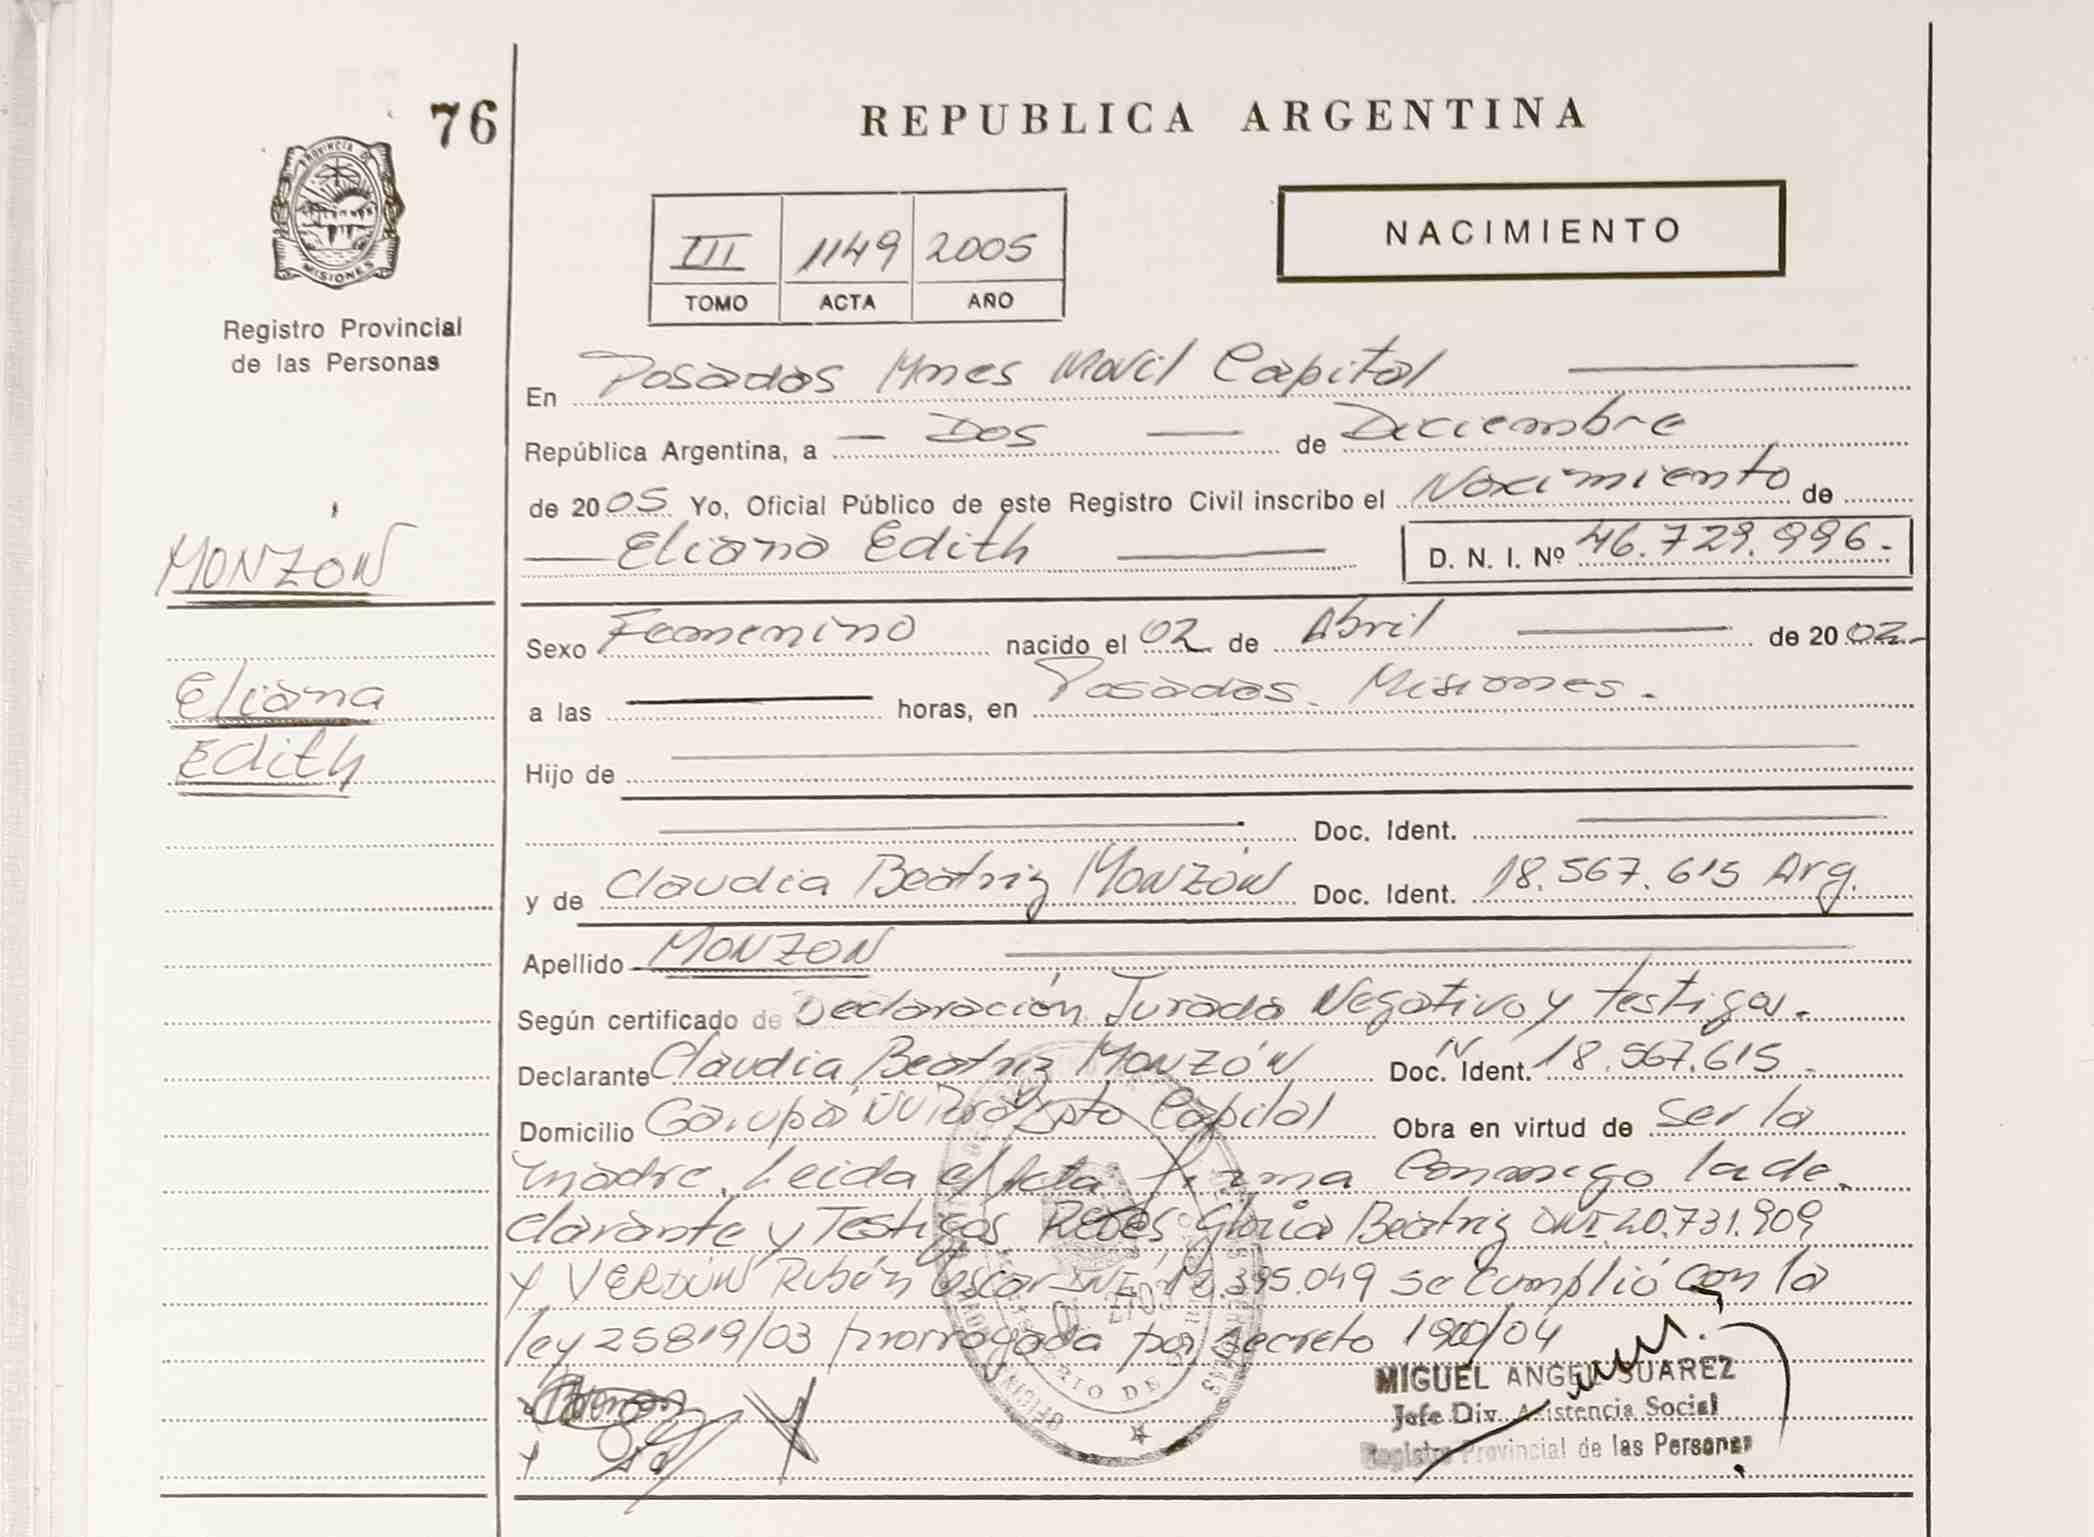 76
REPUBLICA ARGENTINA
PROVINCIA D
MISIONES
Registro Provincial
de las Personas
III 1149 2005
TOMO ACTA AÑO
NACIMIENTO
En Posadas Mnes Movil Capital
República Argentina, a — Dos — de Diciembre
de 2005 Yo, Oficial Público de este Registro Civil inscribo el Nacimiento de
Eliana Edith
D. N. I. Nº 46.729.996.-
MONZÓN
Eliana
Edith
Sexo Femenino nacido el 02 de Abril de 2002.-
a las horas, en Posadas. Misiones.
Hijo de
Doc. Ident.
y de Claudia Beatriz MONZÓN Doc. Ident. 18.567.615 Arg.
Apellido MONZON
Según certificado de Declaración Jurada Negativo y testigos.
Declarante Claudia Beatriz MONZÓN Doc. Ident. 18.567.615.
Domicilio Garupá Dpto Capital Obra en virtud de Ser la
madre. Leida el Acta firma Conmigo la de-
clarante y Testigos Gloria Beatriz DNI.20.731.909
Y VERDÚN Rubén Oscar DNI 12.395.049 se Cumplió con la
ley 25819/03 prorrogada por decreto 1900/04
MIGUEL ANGEL SUAREZ
Jefe Div. Asistencia Social
Registro Provincial de las Personas